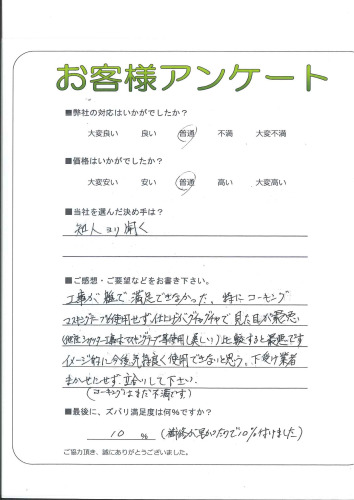 お客様アンケート
■弊社の対応はいかがでしたか?
大変良い 良い 普通 不満 大変不満
■価格はいかがでしたか?
大変安い 安い 普通 高い 大変高い
■当社を選んだ決め手は?
知人ヨリ聞く
■ご感想・ご要望などをお書き下さい。
工事が雑で満足できなかった、特にコーキング
マスキングテープを使用せず、仕上りがグチャグチャで見た目が最悪
工事はマスキングテープ等使用し美しい)比較すると最悪です
イメージ的に今後気持良く使用できないと思う。下受け業者
まかせにせず、立合いして下さい。
(コーキングはまだ不満です)
■最後に、ズバリ満足度は何%ですか?
10 % (補修が早かったので10%付けました)
ご協力頂き、誠にありがとうございました。